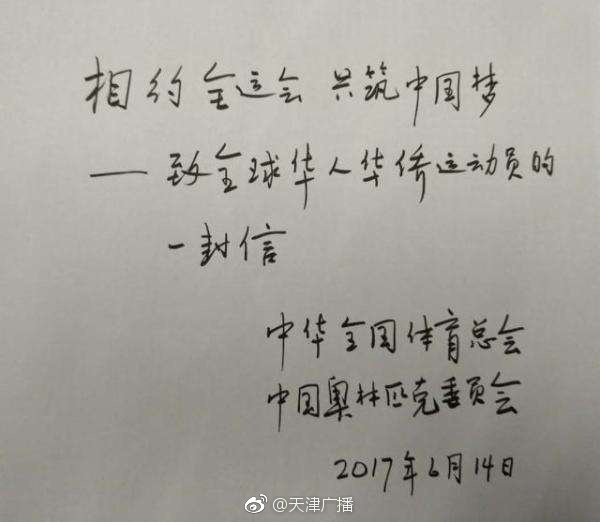 相约全运会 共筑中国梦
——致全球华人华侨运动员的
一封信
中华全国体育总会
中国奥林匹克委员会
2017年6月14日
@天津广播